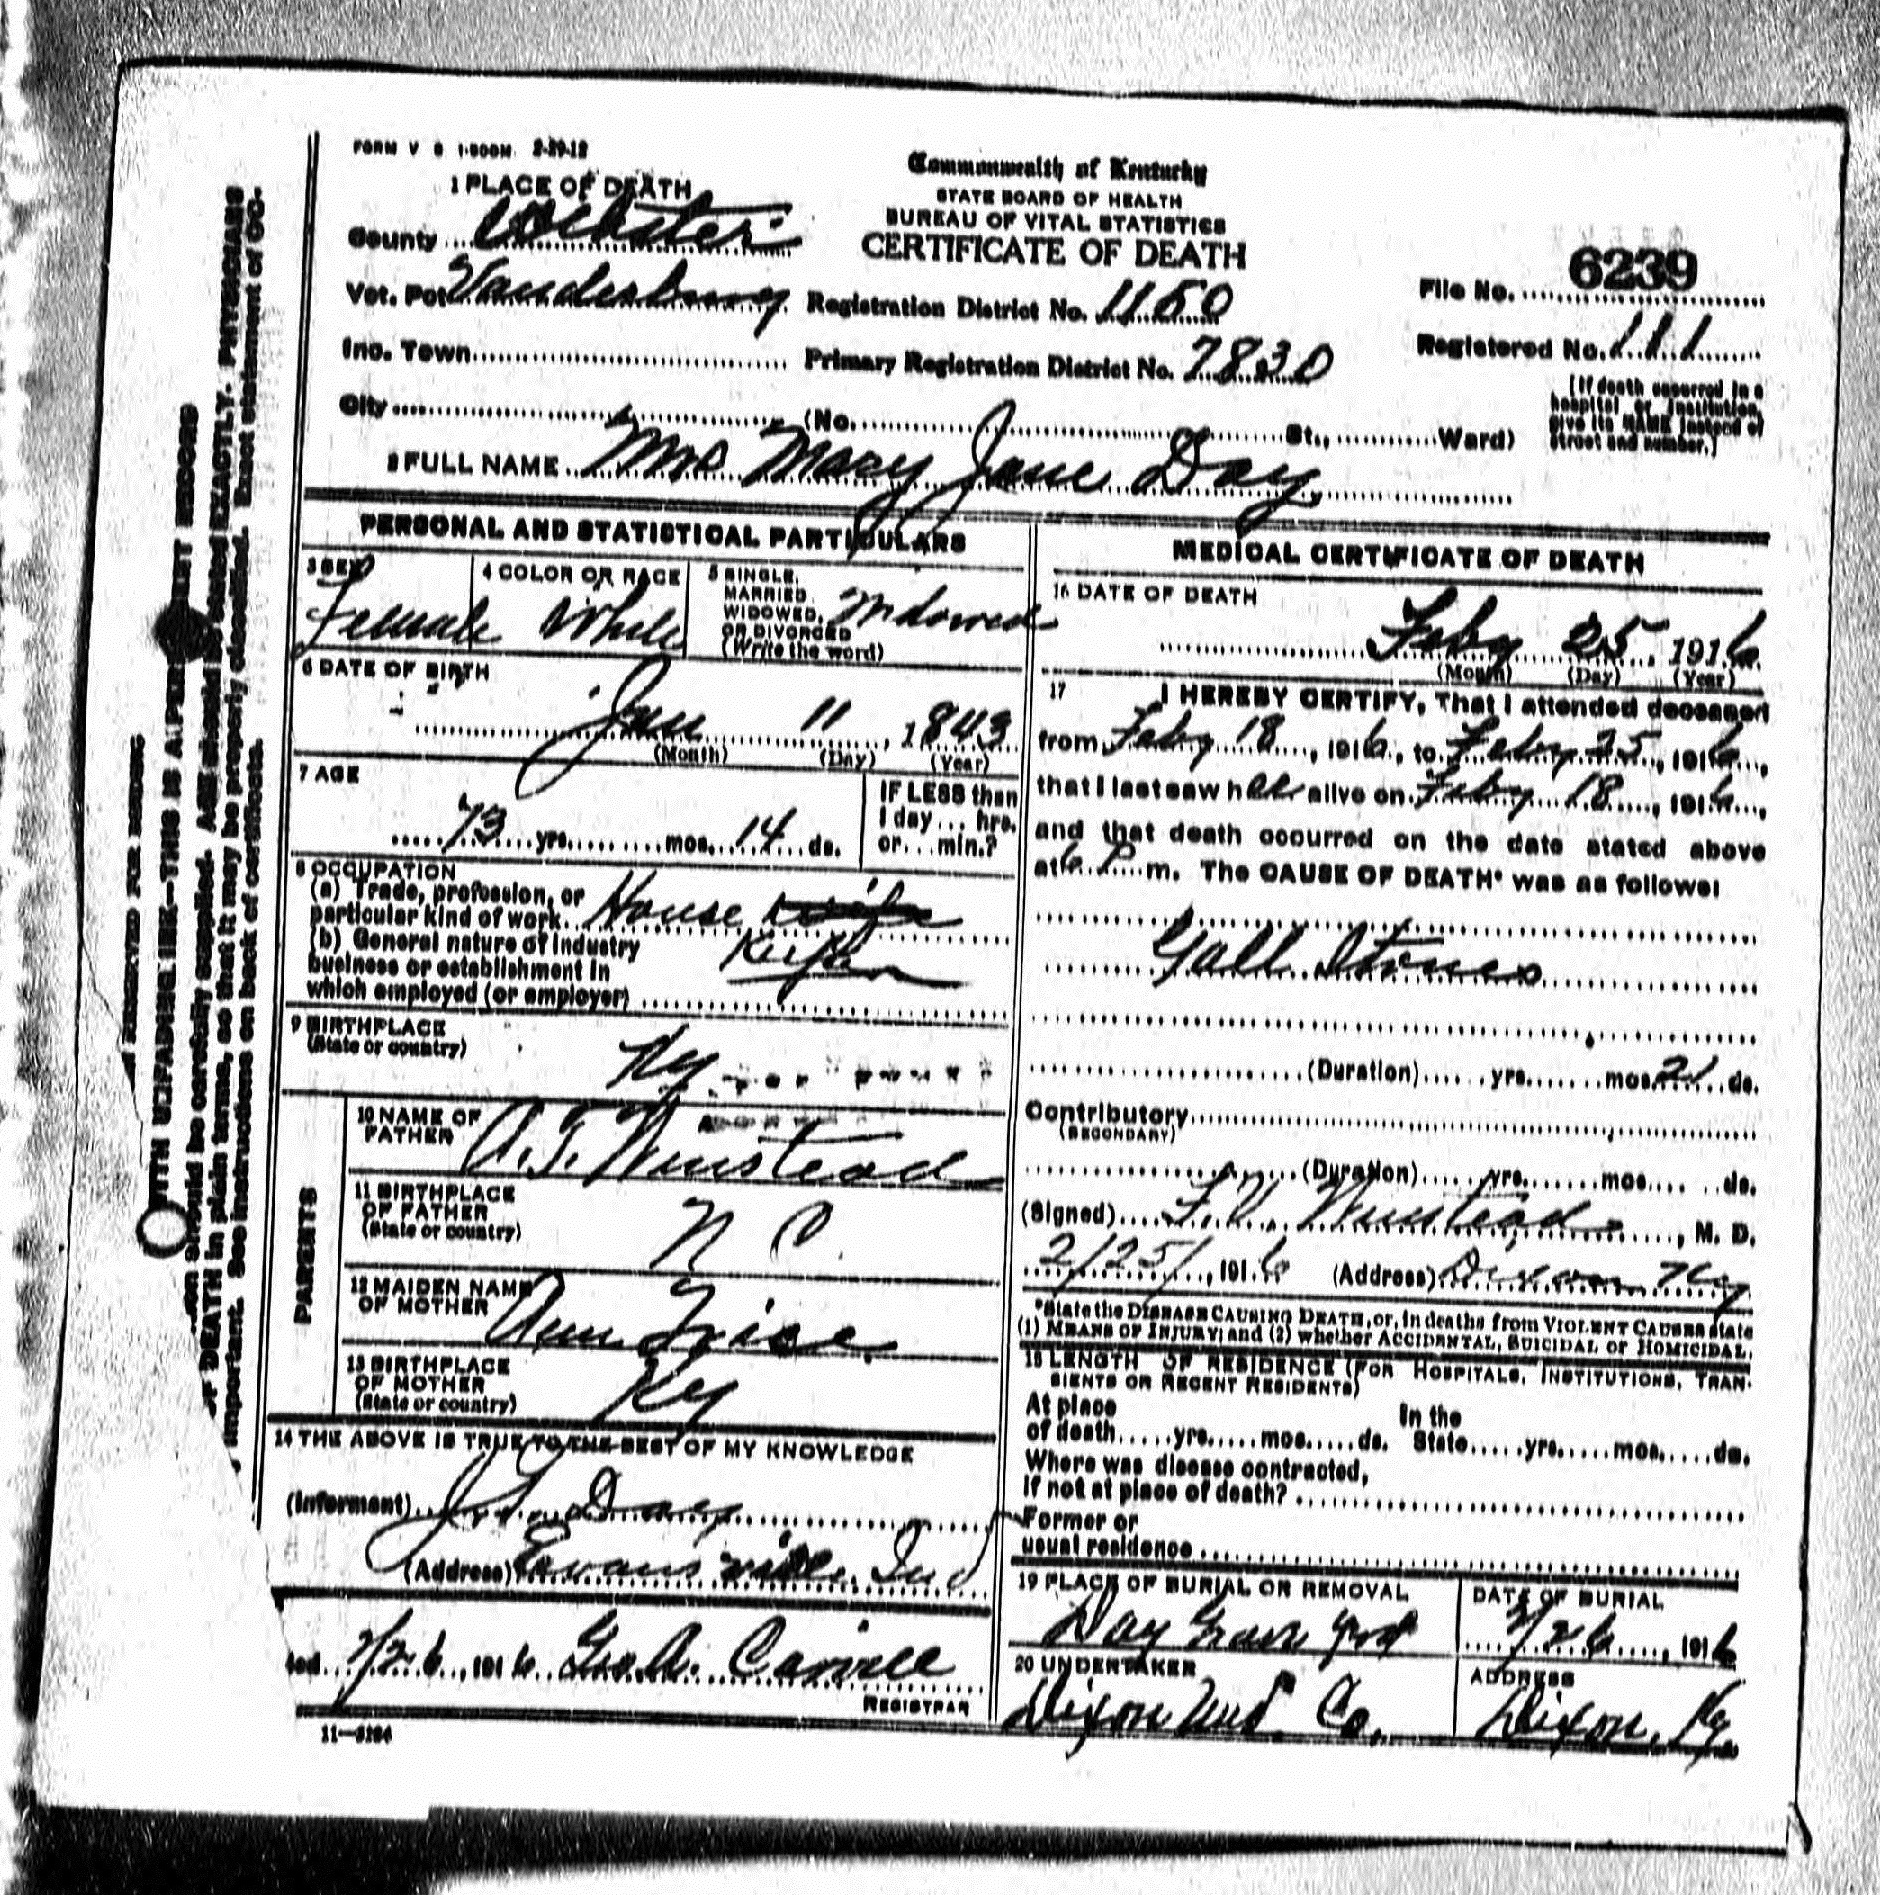 FORM V S 1-500M 2-29-12
Commonwealth of Kentucky
STATE BOARD OF HEALTH
BUREAU OF VITAL STATISTICS
CERTIFICATE OF DEATH
1 PLACE OF DEATH
County Webster
Vot. Pct Vanderburg Registration District No. 1150
File No. 6239
Inc. Town Primary Registration District No. 7830
Registered No. 111
City (No. St., Ward)
(If death occurred in a
hospital or institution,
give its NAME instead of
street and number.)
2 FULL NAME Mrs Mary Jane Day
PERSONAL AND STATISTICAL PARTICULARS
3 SEX
Female
4 COLOR OR RACE
White
5 SINGLE,
MARRIED
WIDOWED,
OR DIVORCED
(Write the word)
Widowed
6 DATE OF BIRTH
Jan 11, 1843
(Month) (Day) (Year)
7 AGE
73 yrs. mos. 14 ds.
IF LESS than
1 day ... hrs.
or ... min.?
8 OCCUPATION
(a) Trade, profession, or
particular kind of work House wife
(b) General nature of industry
business or establishment in
which employed (or employer)
9 BIRTHPLACE
(State or country)
Ky
PARENTS
10 NAME OF
FATHER
A. T. Winstead
11 BIRTHPLACE
OF FATHER
(State or country)
N C
12 MAIDEN NAME
OF MOTHER
Ann Trice
13 BIRTHPLACE
OF MOTHER
(State or country)
Ky
14 THE ABOVE IS TRUE TO THE BEST OF MY KNOWLEDGE
(Informant) Day
(Address) Evansville Ind
2/26, 1916 Geo.
REGISTRAR
11—3184
MEDICAL CERTIFICATE OF DEATH
16 DATE OF DEATH
Feby 25, 1916
(Month) (Day) (Year)
17 I HEREBY CERTIFY, That I attended deceased
from Feby 18, 1916, to Feby 25, 1916,
that I last saw her alive on Feby 18, 1916,
and that death occurred on the date stated above
at 6 P m. The CAUSE OF DEATH* was as follows:
Gall Stones
(Duration) yrs. mos. 21 ds.
Contributory
(SECONDARY)
(Duration) yrs. mos. ds.
(Signed) Winstead, M. D.
2/25/, 1916 (Address) Dixon Ky
*State the DISEASE CAUSING DEATH, or, in deaths from VIOLENT CAUSES state
(1) MEANS OF INJURY; and (2) whether ACCIDENTAL, SUICIDAL or HOMICIDAL.
18 LENGTH OF RESIDENCE (FOR HOSPITALS, INSTITUTIONS, TRAN-
SIENTS OR RECENT RESIDENTS)
At place
of death yrs. mos. ds.
In the
State yrs. mos. ds.
Where was disease contracted,
If not at place of death?
Former or
usual residence
19 PLACE OF BURIAL OR REMOVAL
Day Grave Yrd
DATE OF BURIAL
2/26, 1916
20 UNDERTAKER
Dixon Und. Co.
ADDRESS
Dixon, Ky.
RESERVED FOR BINDING
WITH UNFADING INK—THIS IS A PERMANENT RECORD
should be carefully supplied. AGE should be stated EXACTLY. PHYSICIANS
OF DEATH in plain terms, so that it may be properly classified. Exact statement of OC-
important. See instructions on back of certificate.